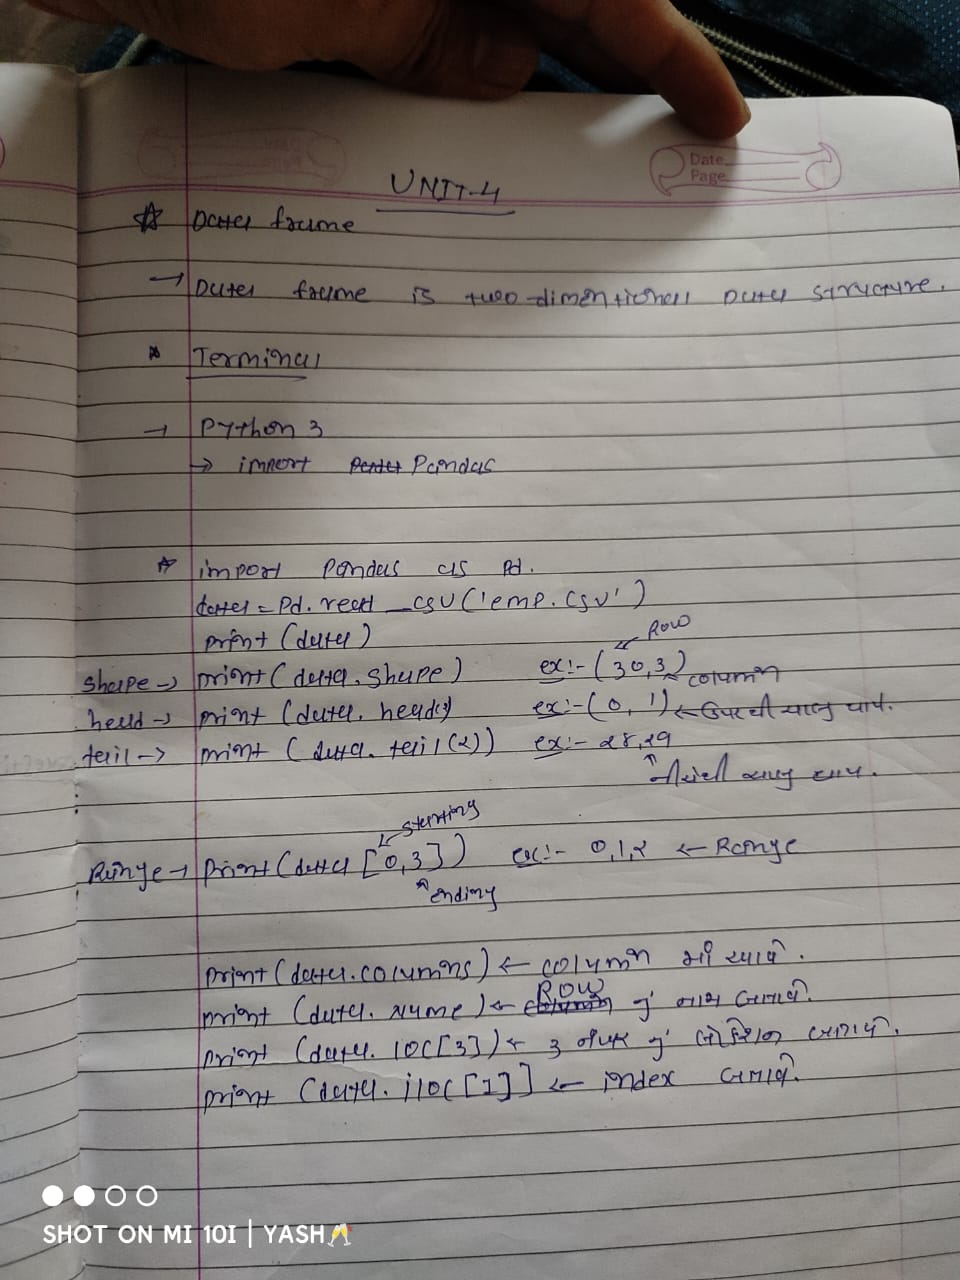 Date
Page
UNIT-4
☆ Data frame
→ Data frame is two-dimentional Data structure.
* Terminal
→ Python 3
→ import Pandas
☆ import Pandas as Pd.
data = Pd. read _csv('emp.csv')
print (data)
Row
shape → print(data.shape) ex:- (30,3) column
head → print (data. head()) ex:-(0, 1) ← ઉપરથી ચાલુ થાય.
tail → print (data. tail(2)) ex:- 28,29
ચાલુ થાય.
starting
Range → Print(data [0,3]) ex:- 0,1,2 ← Range
ending
print(data.columns) ← column
print (data. name) ← Row નું નામ બતાવે.
print (data. loc[3]) ← 3 નું બતાવે.
print (data. iloc[1]] ← index બતાવે.
SHOT ON MI 10I | YASH🥂